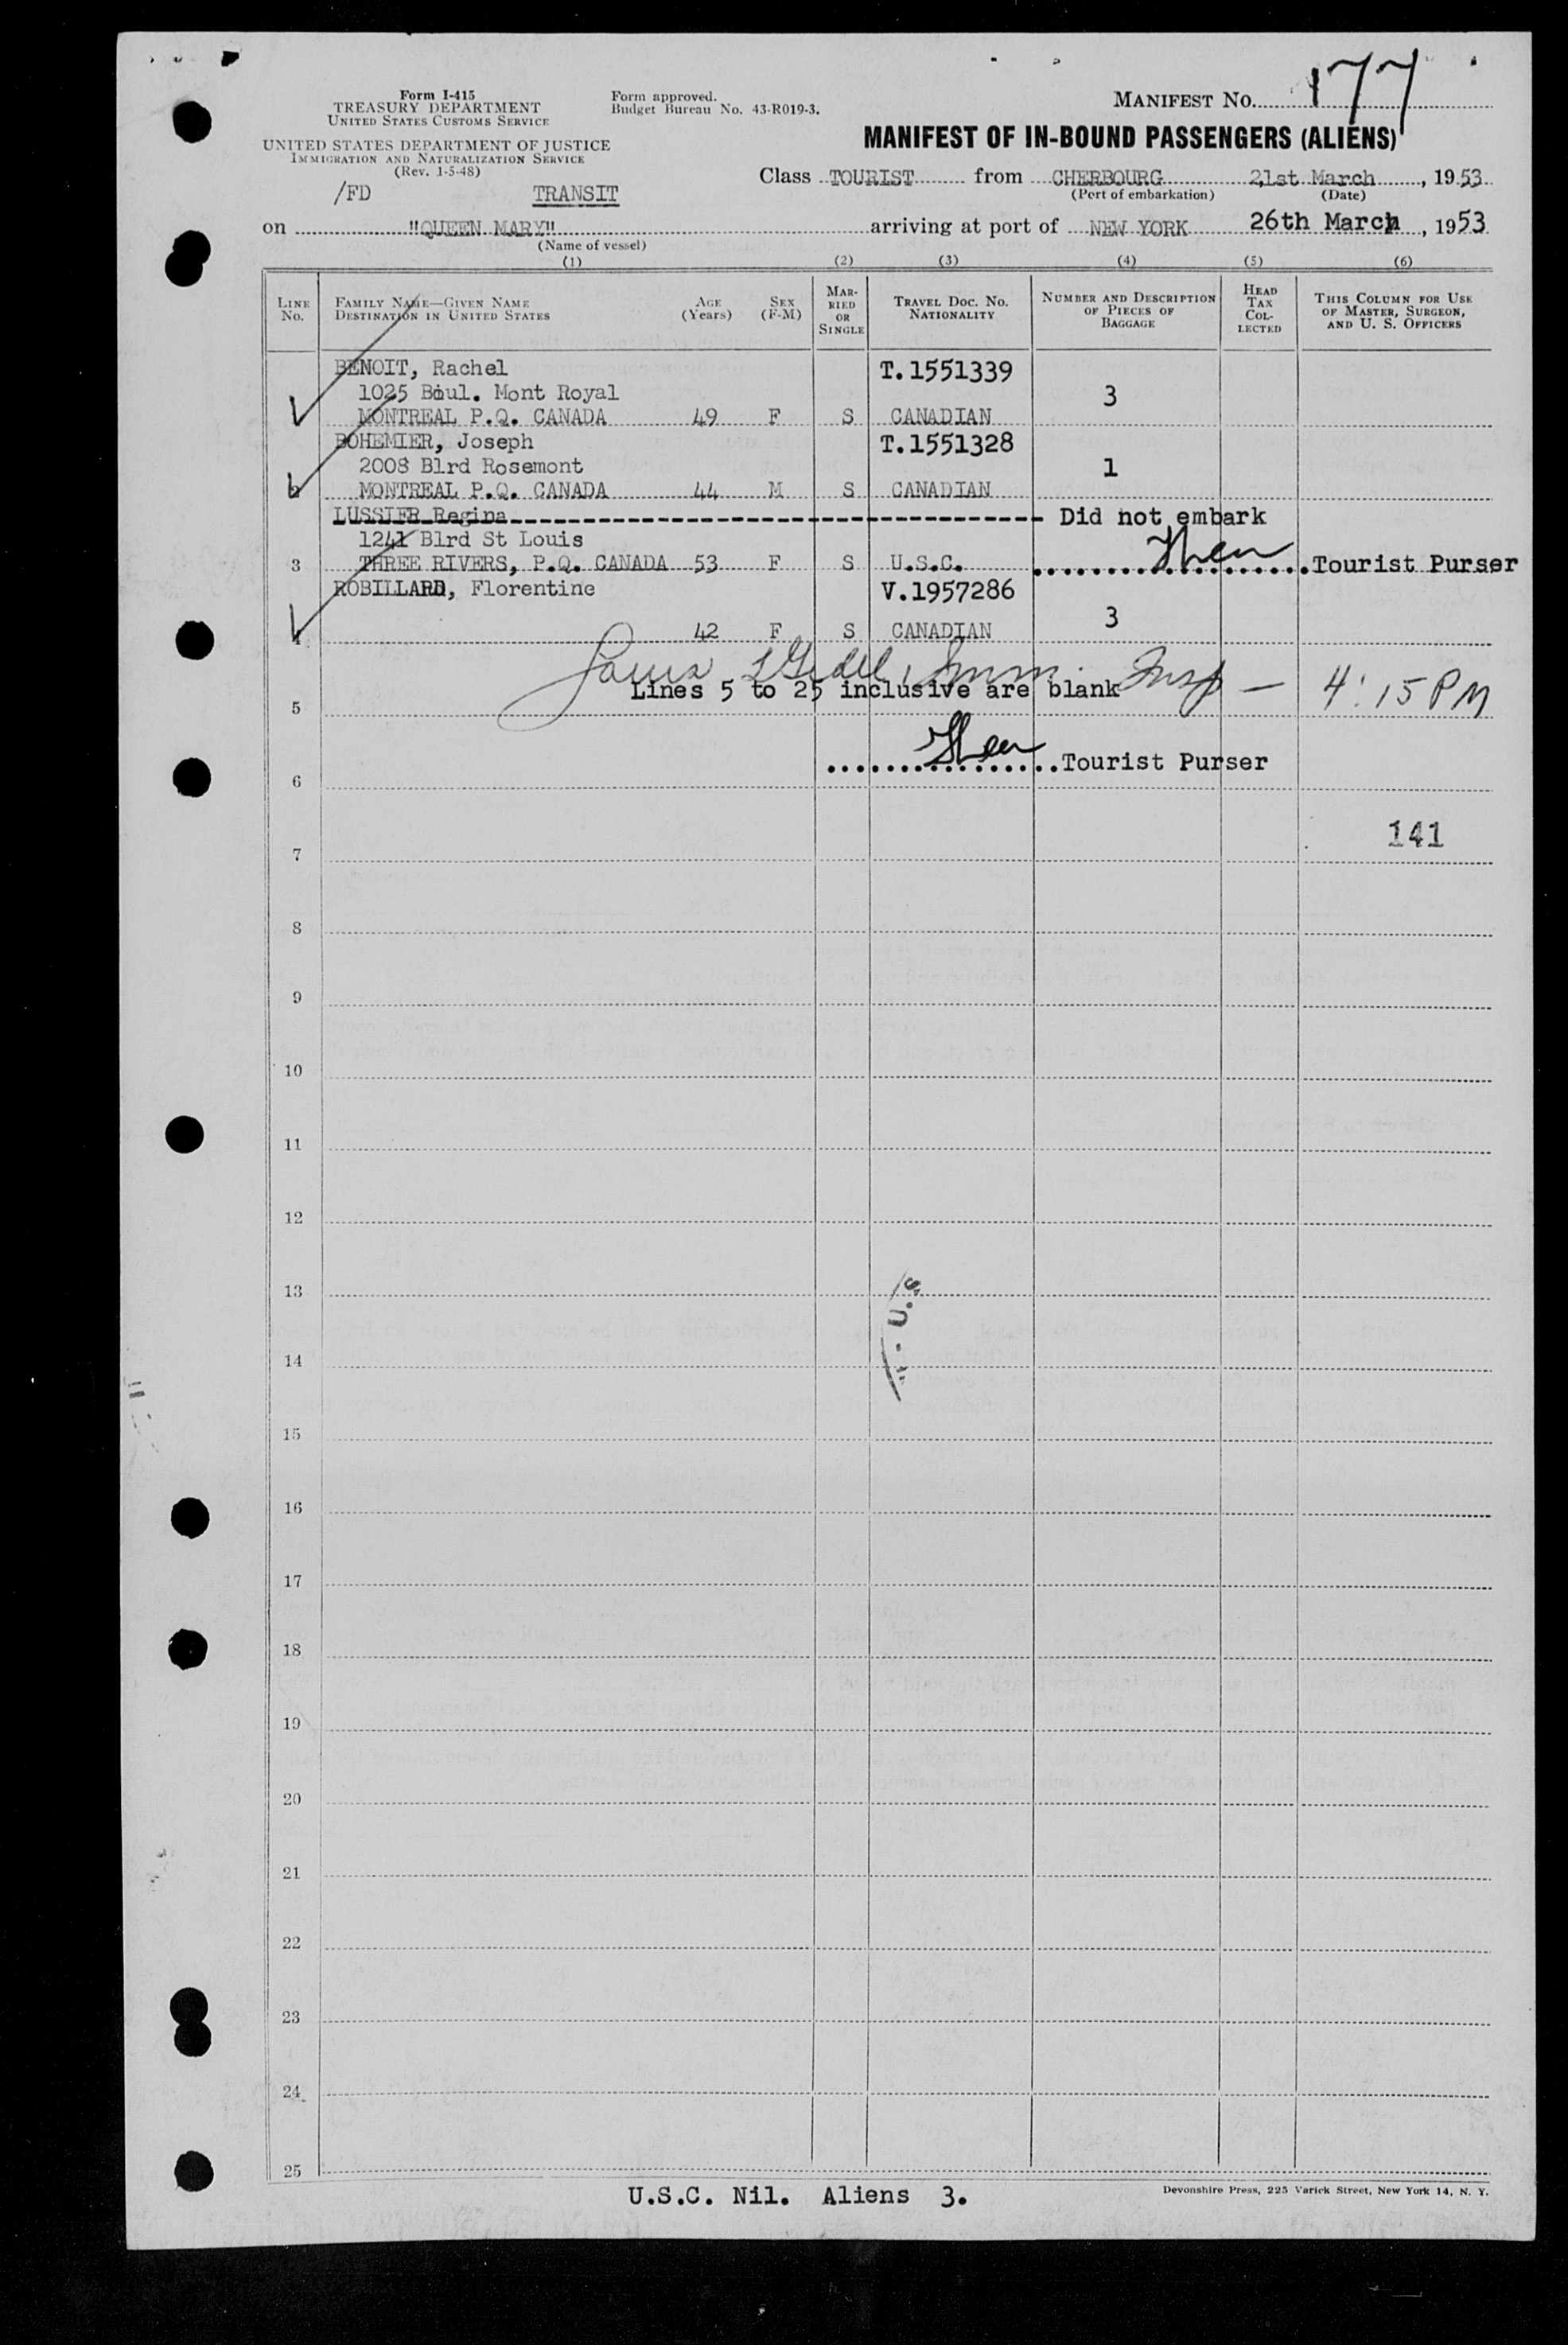 Form I-415
TREASURY DEPARTMENT
UNITED STATES CUSTOMS SERVICE
UNITED STATES DEPARTMENT OF JUSTICE
IMMIGRATION AND NATURALIZATION SERVICE
(Rev. 1-5-48)
Form approved.
Budget Bureau No. 43-R019-3.
MANIFEST NO. 177
MANIFEST OF IN-BOUND PASSENGERS (ALIENS)
/FD TRANSIT
Class TOURIST from CHERBOURG 21st March, 1953
(Port of embarkation) (Date)
on "QUEEN MARY" arriving at port of NEW YORK 26th March, 1953
(Name of vessel)
(1) (2) (3) (4) (5) (6)
LINE NO.
FAMILY NAME—GIVEN NAME
DESTINATION IN UNITED STATES
AGE (Years)
SEX (F-M)
MARRIED OR SINGLE
TRAVEL DOC. NO.
NATIONALITY
NUMBER AND DESCRIPTION
OF PIECES OF
BAGGAGE
HEAD TAX COLLECTED
THIS COLUMN FOR USE
OF MASTER, SURGEON,
AND U. S. OFFICERS
BENOIT, Rachel T.1551339
1025 Boul. Mont Royal 3
MONTREAL P.Q. CANADA 49 F S CANADIAN
BOHEMIER, Joseph T.1551328
2008 Blrd Rosemont 1
2 MONTREAL P.Q. CANADA 44 M S CANADIAN
LUSSIER Regina Did not embark
1241 Blrd St Louis
3 THREE RIVERS, P.Q. CANADA 53 F S U.S.C. Tourist Purser
ROBILLARD, Florentine V.1957286
3
4 42 F S CANADIAN
Immi. Insp — 4:15 PM
Lines 5 to 25 inclusive are blank
5
Tourist Purser
6
141
7
8
9
10
11
12
13
14
15
16
17
18
19
20
21
22
23
24
25
U.S.C. Nil. Aliens 3.
Devonshire Press, 225 Varick Street, New York 14, N. Y.